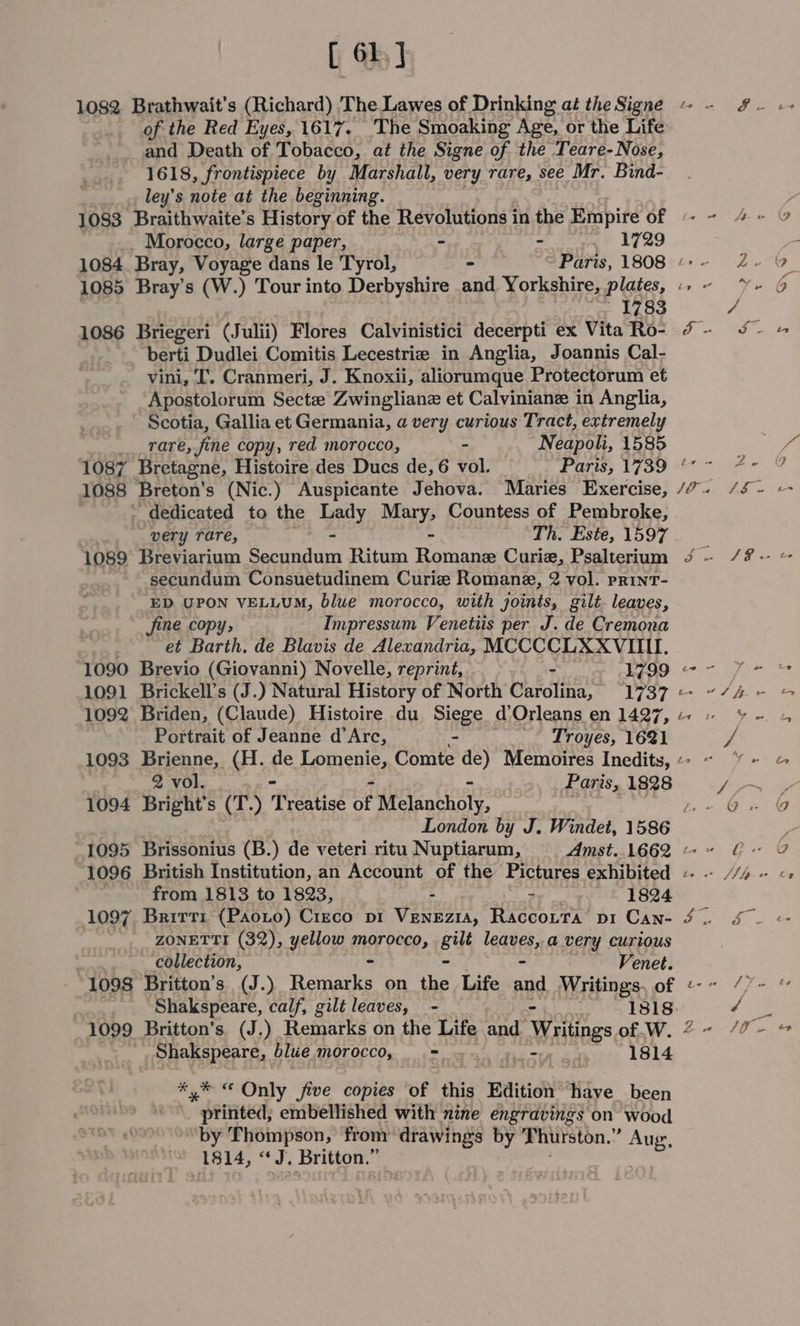 [ 61 ]
1082 Brathwait's (Richard) The Lawes of Drinking at the Signe
of the Red Eyes, 1617. The Smoaking Age, or the Life
and Death of Tobacco, at the Signe of the Teare-Nose,
1618, frontispiece by Marshall, very rare, see Mr. Bind-
ley's note at the beginning.
1083 Braithwaite's History of the Revolutions in the Empire of
Morocco, large paper, - - 1729
1084 Bray, Voyage dans le Tyrol, - Paris, 1808
1085 Bray's (W.) Tour into Derbyshire and Yorkshire, plates,
1783
1086 Briegeri (Julii) Flores Calvinistici decerpti ex Vita Ro-
berti Dudlei Comitis Lecestriæ in Anglia, Joannis Cal-
vini, T. Cranmeri, J. Knoxii, aliorumque Protectorum et
Apostolorum Sectæ Zwinglianæ et Calvinianæ in Anglia,
Scotia, Gallia et Germania, a very curious Tract, extremely
rare, fine copy, red morocco, - Neapoli, 1585
1087 Bretagne, Histoire des Ducs de, 6 vol. Paris, 1739
1088 Breton's (Nic.) Auspicante Jehova. Maries Exercise,
dedicated to the Lady Mary, Countess of Pembroke,
very rare, - - Th. Este, 1597
1089 Breviarium Secundum Ritum Romanæ Curiæ, Psalterium
secundum Consuetudinem Curiæ Romanæ, 2 vol. PRINT-
ED UPON VELLUM, blue morocco, with joints, gilt leaves,
fine copy, Impressum Venetiis per J. de Cremona
et Barth. de Blavis de Alexandria, MCCCCLXXVIIII.
1090 Brevio (Giovanni) Novelle, reprint, - 1799
1091 Brickell's (J.) Natural History of North Carolina, 1737
1092 Briden, (Claude) Histoire du Siege d'Orleans en 1427,
Portrait of Jeanne d'Arc, - Troyes, 1621
1093 Brienne, (H. de Lomenie, Comte de) Memoires Inedits,
2 vol. - - - Paris, 1828
1094 Bright's (T.) Treatise of Melancholy,
London by J. Windet, 1586
1095 Brissonius (B.) de veteri ritu Nuptiarum, Amst. 1662
1096 British Institution, an Account of the Pictures exhibited
from 1813 to 1823, - - 1824
1097 BRITTI (PAOLO) CIECO DI VENEZIA, RACCOLTA DI CAN-
ZONETTI (32), yellow morocco, gilt leaves, a very curious
collection, - - - Venet.
1098 Britton's (J.) Remarks on the Life and Writings, of
Shakspeare, calf, gilt leaves, - - 1818
1099 Britton's (J.) Remarks on the Life and Writings of W.
Shakspeare, blue morocco, - - 1814
*** "Only five copies of this Edition have been
printed, embellished with nine engravings on wood
by Thompson, from drawings by Thurston." Aug.
1814, "J. Britton."